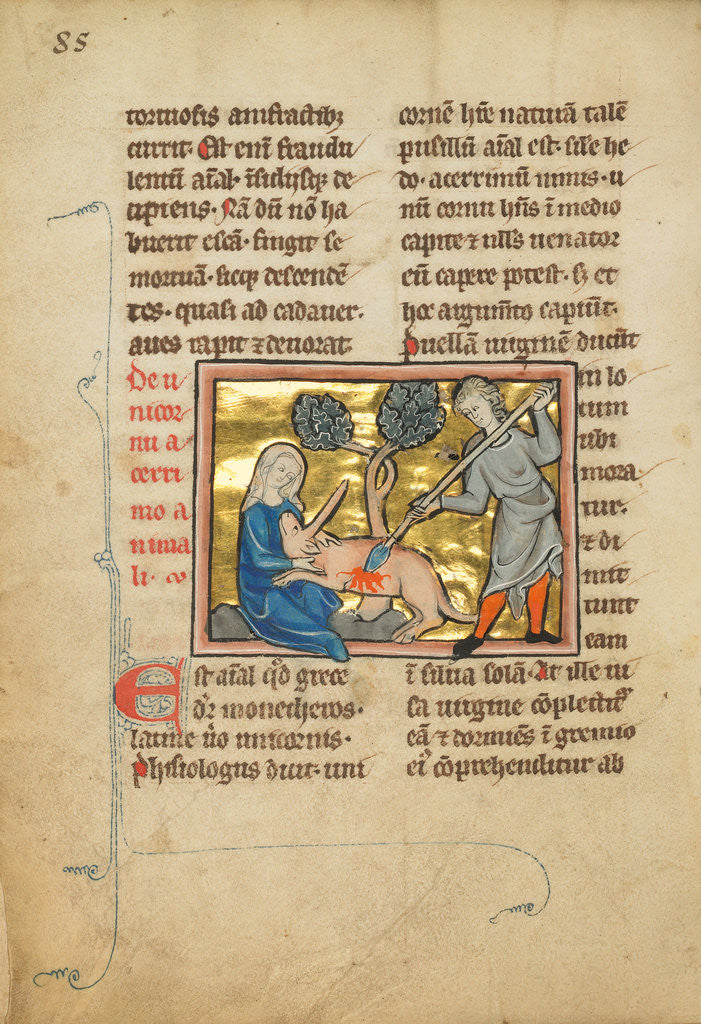 85
tortuosis amfractibꝫ
currit· Est enī fraudu
lentū aīal· īsidijsqꝫ de
cipiens· Nā dū nō ha
buerit escā· fingit se
mortuā· sicqꝫ descendē
tes· quasi ad cadauer·
aues rapit ⁊ deuorat·
De u
nicor
nu a
cerri
mo a
nima
li·
Est aīal qd̄ grece
dr̄ monecheros·
latine ūo unicornis·
Phisiologus dicit· uni
cornē hr̄e naturā talē
pusillū aīal est· sile he
do· acerrimū nimis· u
nū cornu hn̄s ī medio
capite ⁊ nllꝰ uenator
eū capere potest· sꝫ et
hoc argumīto capiūt·
Puellā uirginē ducūt
in lo
cum
ubi
mora
tur·
⁊ di
mit
tunt
eam
ī silua solā· At ille ui
sa uirgine cōplectitᷣ
eā ⁊ dormiēs ī gremio
eiꝰ cōprehenditur ab